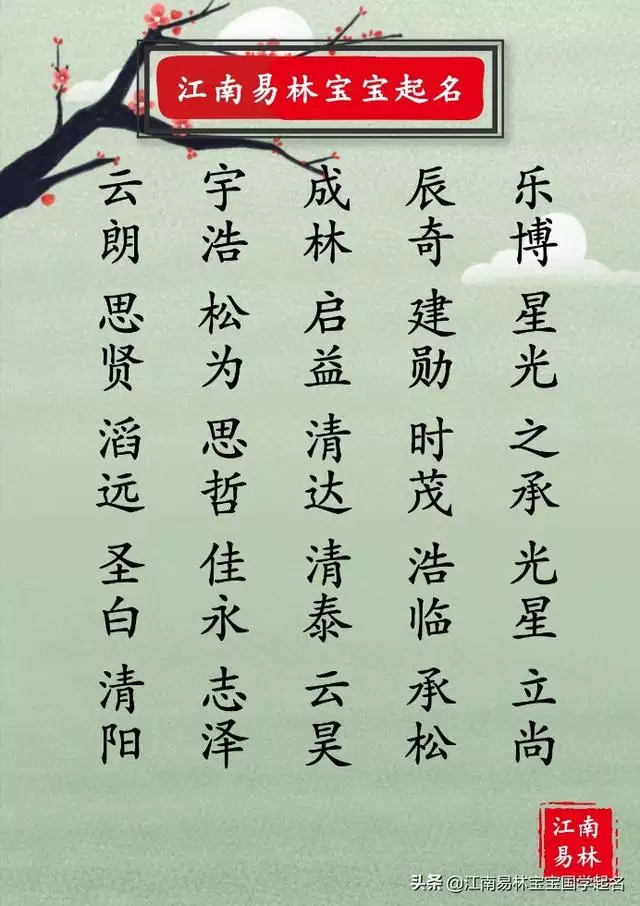 江南易林宝宝起名
云朗
宇浩
成林
辰奇
乐博
思贤
松为
启益
建勋
星光
滔远
思哲
清达
时茂
之承
圣白
佳永
清泰
浩临
光星
清阳
志泽
云昊
承松
立尚
江南
易林
头条 @江南易林宝宝国学起名